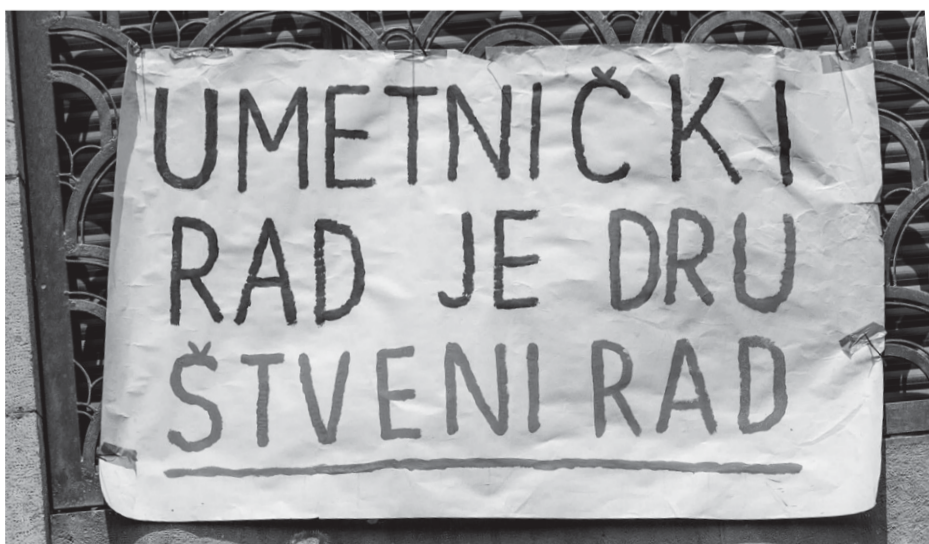 UMETNIČKI
RAD JE DRU
ŠTVENI RAD